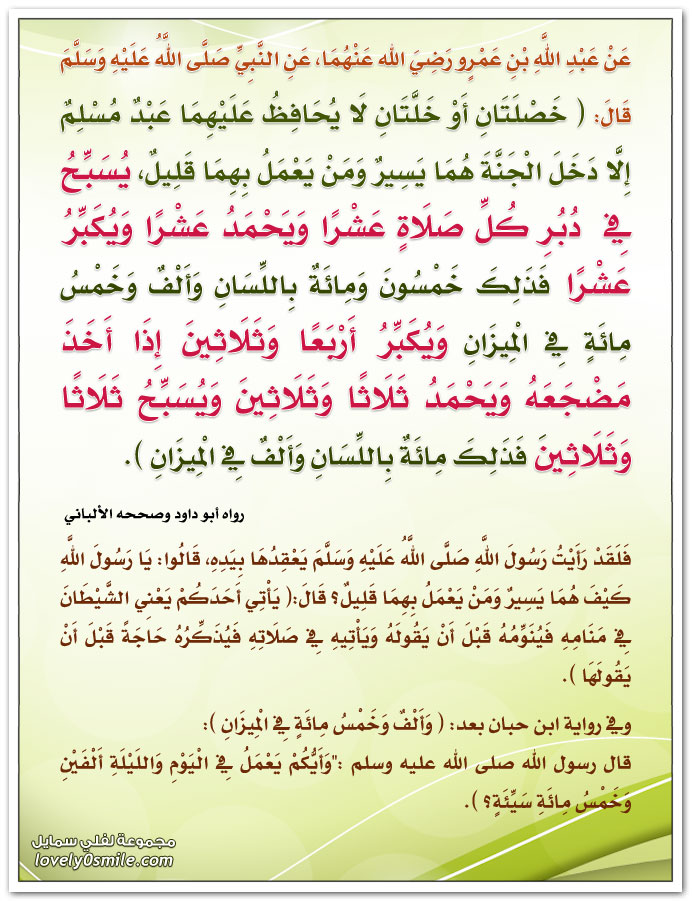 عَنْ عَبْدِ اللَّهِ بْنِ عَمْرٍو رَضِيَ الله عَنْهُمَا، عَنِ النَّبِيِّ صَلَّى اللَّهُ عَلَيْهِ وَسَلَّمَ
قَالَ: ( خَصْلَتَانِ أَوْ خَلَّتَانِ لَا يُحَافِظُ عَلَيْهِمَا عَبْدٌ مُسْلِمٌ
إِلَّا دَخَلَ الْجَنَّةَ هُمَا يَسِيرٌ وَمَنْ يَعْمَلُ بِهِمَا قَلِيلٌ، يُسَبِّحُ
فِي دُبُرِ كُلِّ صَلَاةٍ عَشْرًا وَيَحْمَدُ عَشْرًا وَيُكَبِّرُ
عَشْرًا فَذَلِكَ خَمْسُونَ وَمِائَةٌ بِاللِّسَانِ وَأَلْفٌ وَخَمْسُ
مِائَةٍ فِي الْمِيزَانِ وَيُكَبِّرُ أَرْبَعًا وَثَلَاثِينَ إِذَا أَخَذَ
مَضْجَعَهُ وَيَحْمَدُ ثَلَاثًا وَثَلَاثِينَ وَيُسَبِّحُ ثَلَاثًا
وَثَلَاثِينَ فَذَلِكَ مِائَةٌ بِاللِّسَانِ وَأَلْفٌ فِي الْمِيزَانِ ).
رواه أبو داود وصححه الألباني
فَلَقَدْ رَأَيْتُ رَسُولَ اللَّهِ صَلَّى اللَّهُ عَلَيْهِ وَسَلَّمَ يَعْقِدُهَا بِيَدِهِ، قَالُوا: يَا رَسُولَ اللَّهِ
كَيْفَ هُمَا يَسِيرٌ وَمَنْ يَعْمَلُ بِهِمَا قَلِيلٌ؟ قَالَ:( يَأْتِي أَحَدَكُمْ يَعْنِي الشَّيْطَانَ
فِي مَنَامِهِ فَيُنَوِّمُهُ قَبْلَ أَنْ يَقُولَهُ وَيَأْتِيهِ فِي صَلَاتِهِ فَيُذَكِّرُهُ حَاجَةً قَبْلَ أَنْ
يَقُولَهَا ).
وفي رواية ابن حبان بعد: ( وَأَلْفٌ وَخَمْسُ مِائَةٍ فِي الْمِيزَانِ ):
قال رسول الله صلى الله عليه وسلم :"وَأَيُّكُمْ يَعْمَلُ فِي الْيَوْمِ وَاللَّيْلَةِ أَلْفَيْنِ
وَخَمْسُ مِائَةِ سَيِّئَةٍ؟ ).
مجموعة لفلي سمايل
lovely0smile.com